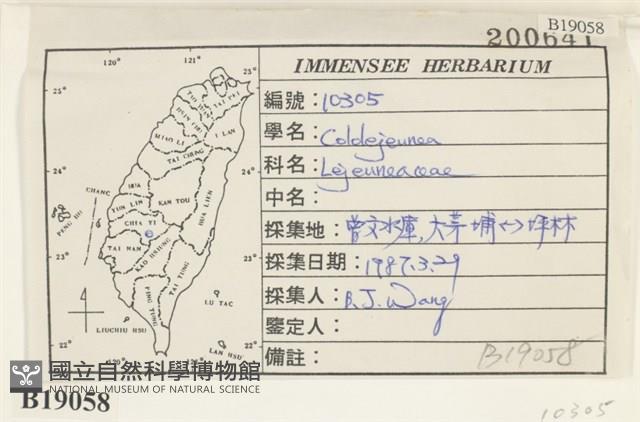 B19058
200641
IMMENSEE HERBARIUM
編號：10305
學名：Cololejeunea
科名：Lejeuneaceae
中名：
採集地：曾文水庫，大茅埔<->坪林
採集日期：1987.3.29
採集人：B.J. Wang
鑒定人：
備註：
B19058
120° 121°
25° 25°
TAO YUAN
TAI PEI
HSIN CHU
I LAN
MIAO LI
TAI CHUNG
24° 24°
CHANG HUA
NAN TOU
HUA LIEN
YUN LIN
PENG HU
CHIA YI
TAI NAN
KAO HSIUNG
23° 23°
TAI TUNG
PING TUNG
LU TAC
LIUCHIU HSU
LAN HSU
22° 22°
120° 121°
國立自然科學博物館
NATIONAL MUSEUM OF NATURAL SCIENCE
B19058
10305